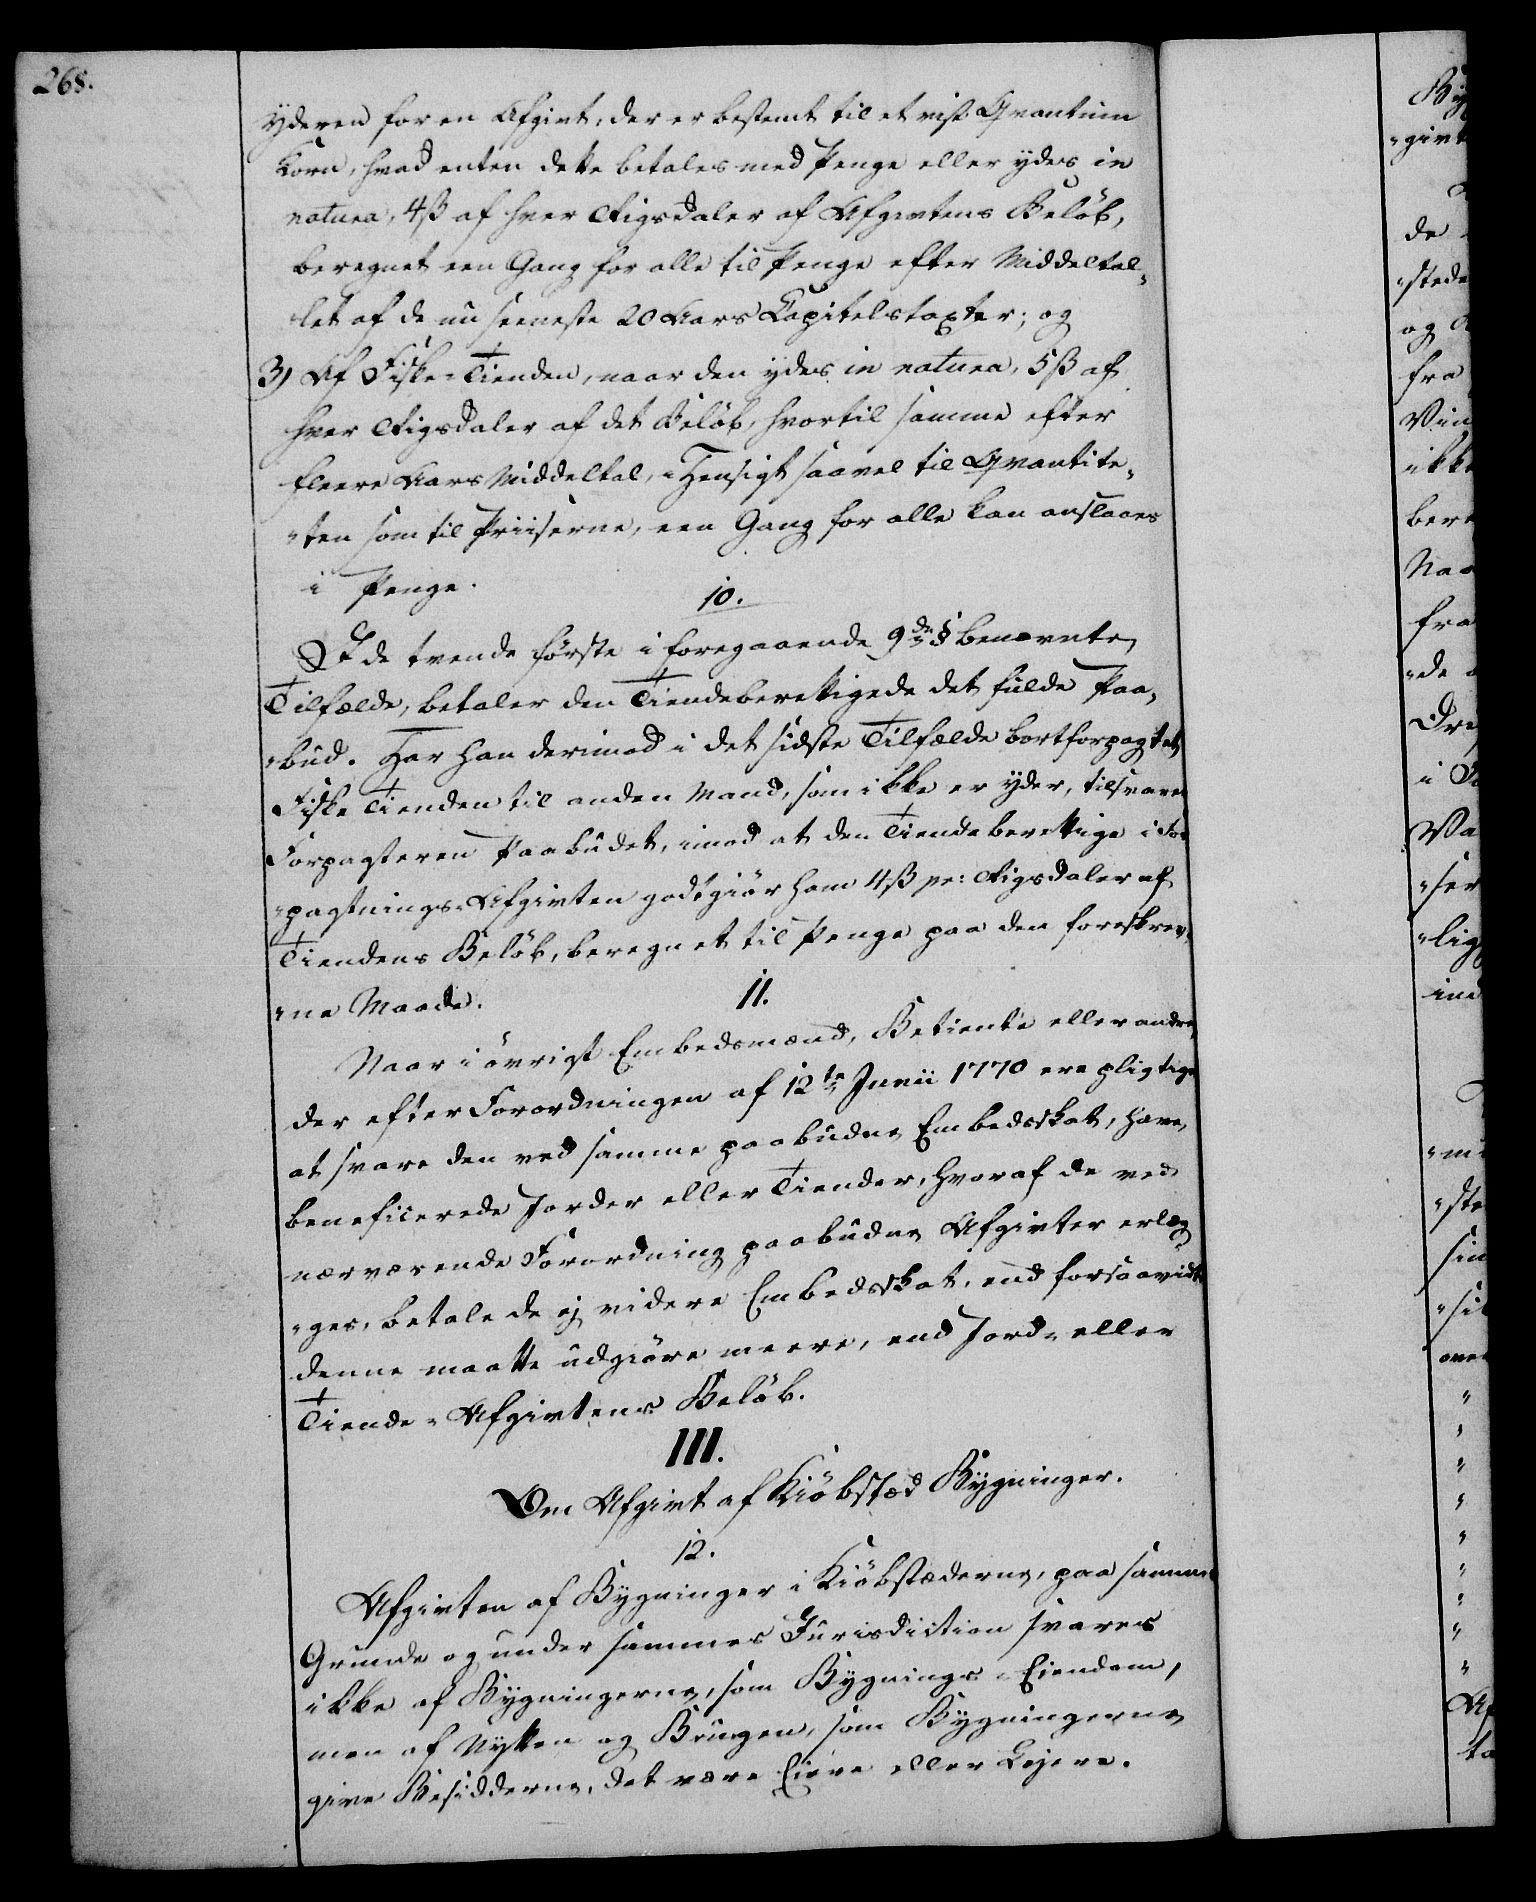 268.
yderen for en Afgivt, der er bestemt til et vist Qvantum
Korn, hvad enten dette betales med Penge eller ydes in
natura, 4 ß af hver Rigsdaler af Afgivtens Beløb,
beregnet een Gang for alle til Penge efter Middeltal„
let af de nu seeneste 20 Aars Capitelstaxter; og
3) Af Fiske-Tienden, naar den ydes in natura, 5 ß af
hver Rigsdaler af det Beløb, hvortil samme efter
fleere Aars Middeltal, i Hensigt saavel til Qvantite„
„ten som til Priiserne, een Gang for alle kan anslaaes
i Penge.
10.
I de tvende første i foregaaende 9de § benævnte
Tilfælde, betaler den Tiendeberettigede det fulde Paa„
„bud. Har han derimod i det sidste Tilfælde bortforpagtet
Fiske Tienden til anden Mand, som ikke er yder, tilsvarer
Forpagteren Paabudet, imod at den Tiendeberettige i For
„pagtnings-Afgivten godtgiör ham 4 ß pr: Rigsdaler af
Tiendens Beløb, beregnet til Penge paa den foreskrev„
„ne Maade.
11.
Naar i övrigt Embedsmænd, Betiente eller andre,
der efter Forordningen af 12te Junii 1770 ere pligtige
at svare den ved samme paabudne Embedsskat, have
beneficerede Jorder eller Tiender, hvoraf de ved
nærværende Forordning paabudne Afgivter erlæg„
„ges, betale de ej videre Embedsskat, end forsaavidt
denne maatte udgiöre meere, end Jord- eller
Tiende-Afgivtens Beløb.
III.
Om Afgivt af Kiöbstæd Bygninger.
12.
Afgivten af Bygninger i Kiöbstæderne, paa sammes
Grunde og under sammes Jurisdiction svares
ikke af Bygningerne, som Bygnings-Eiendom,
men af Nytten og Brugen, som Bygningerne
give Besidderne, det være Eiere eller Lejere.
By
„givt
de
„stede
og
fra
Vin
ikke
bere
Naa
fra
„de
Dre
Va
„ser
„lig
ind
„ste
sin
over
Af